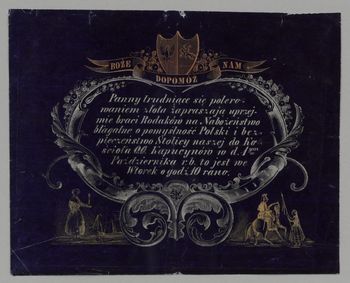 BOŻE NAM
DOPOMÓŻ
Panny trudniące się polero-
waniem złota zapraszają uprzej-
mie braci Rodaków na Nabożeństwo
błagalne o pomyślność Polski i bez-
pieczeństwo Stolicy naszej do Ko-
ścioła OO. Kapucynów w d. 4
Października r.b. to jest we
Wtorek o godz. 10 rano.